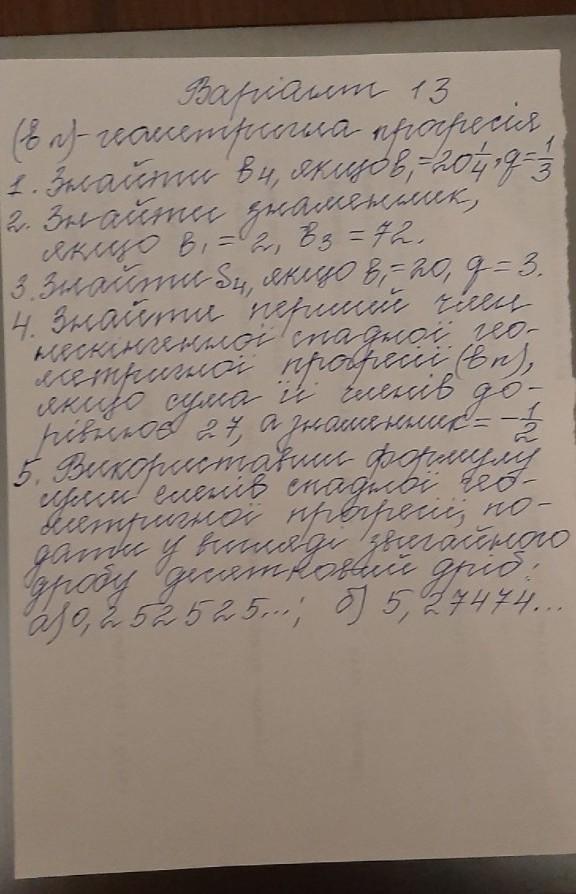 Варіант 13
(bn)-геометрична прогресія
1. Знайти b4, якщо b1=20 1/4, q=1/3
2. Знайти знаменник,
якщо b1 = 2, b3 = 72.
3. Знайти S4, якщо b1=20, q = 3.
4. Знайти перший член
нескінченної спадної гео-
метричної прогресії (bn),
якщо сума її членів до-
рівнює 27, а знаменник = -1/2
5. Використавши формулу
суми членів спадної гео-
метричної прогресії, по-
дати у вигляді звичайного
дробу десятковий дріб:
а) 0,252525...; б) 5,27474...